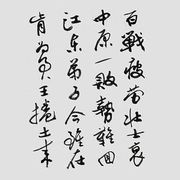 百戰疲勞壯士哀
中原一敗勢難迴
江東弟子今雖在
肯為君王捲土來